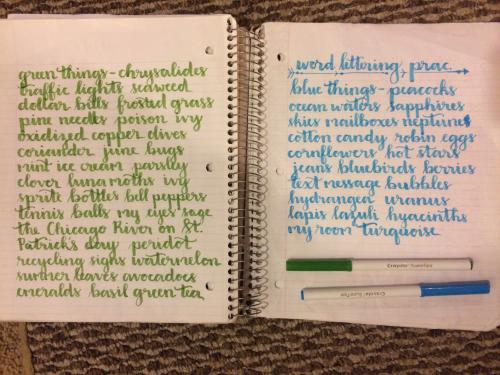 green things - chrysalides
traffic lights seaweed
dollar bills frosted grass
pine needles poison ivy
oxidized copper olives
coriander june bugs
mint ice cream parsley
clover luna moths ivy
sprite bottles bell peppers
tennis balls my eyes sage
the Chicago River on St.
Patrick's day peridot
recycling signs watermelon
summer leaves avocados
emeralds basil green tea
word lettering prac.
blue things - peacocks
ocean waters sapphires
skies mailboxes neptune
cotton candy robin eggs
cornflowers hot stars
jeans bluebirds berries
text message bubbles
hydrangea uranus
lapis lazuli hyacinths
my room turquoise
Crayola
Crayola SuperTips